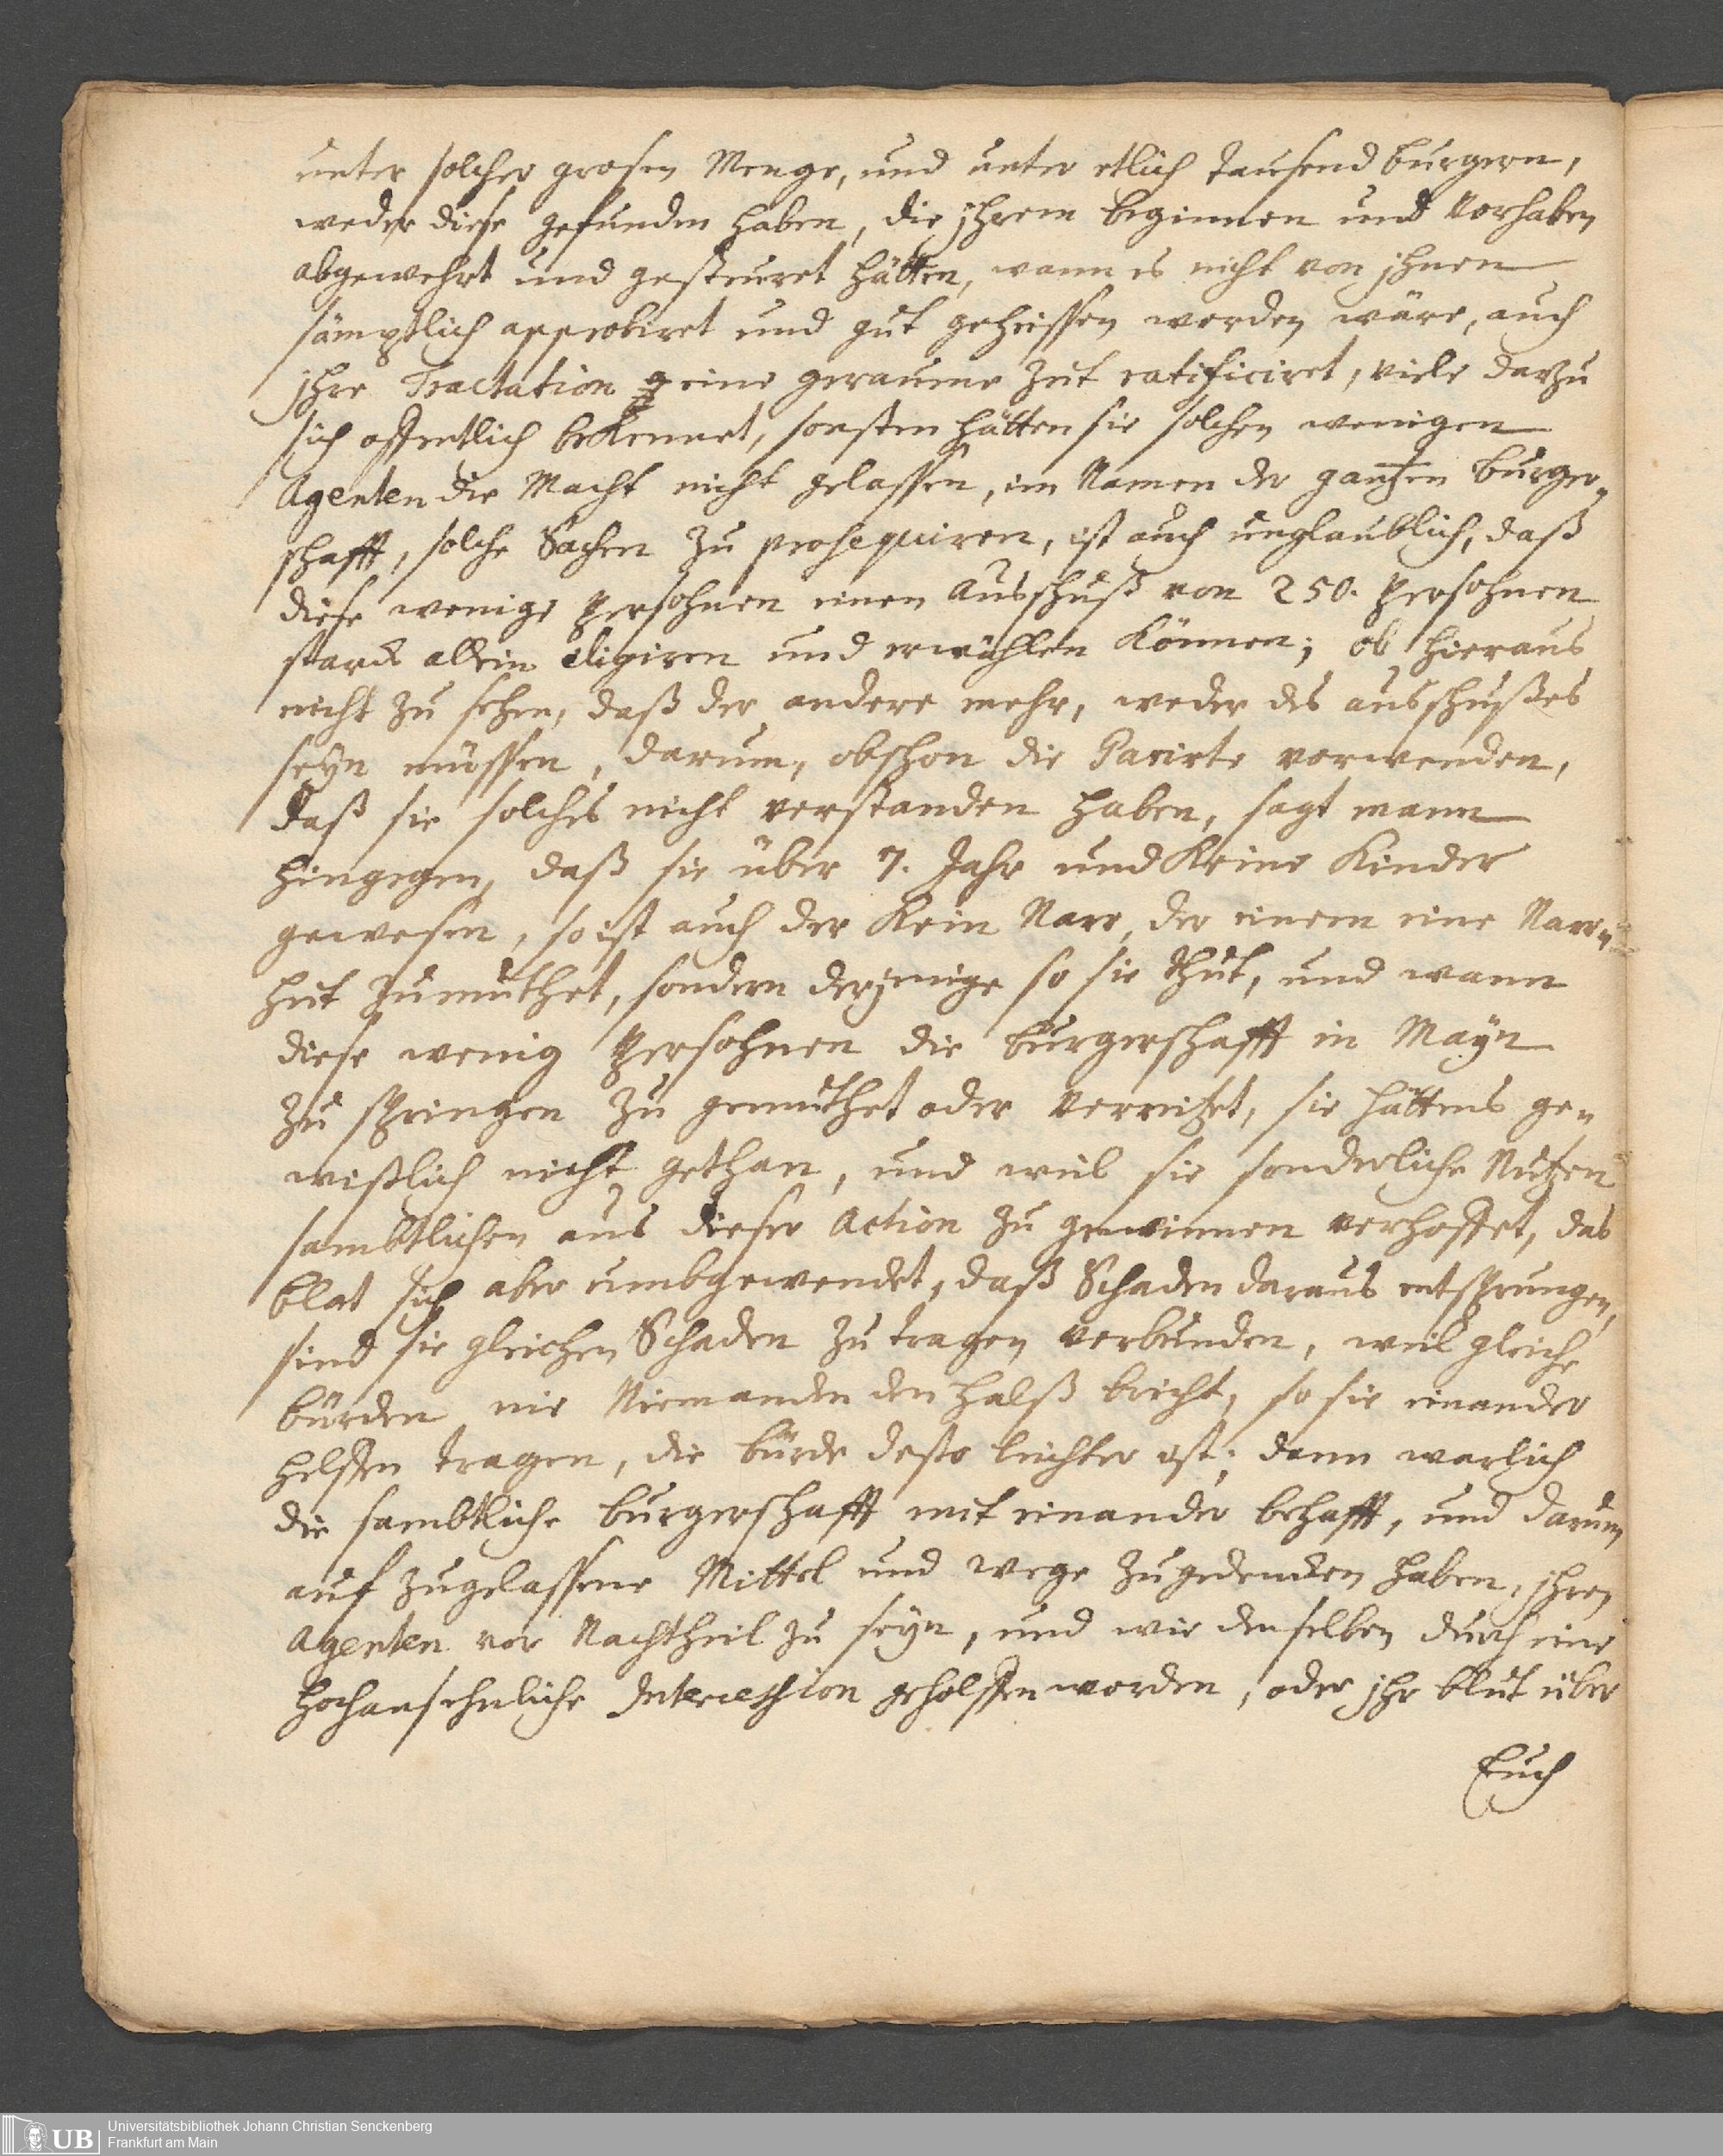 unter solcher grosen Menge, und unter etlich tausend burgern,
weder diese gefunden haben, die jhrem beginnen und Vorhaben
abgewehrt und gesteuret hätten, wann es nicht von jhnen
sämptlich approbiret und gut geheissen worden wäre, auch
jhre Tractation eine geraume Zeit ratificiret, viele darzu
sich offentlich bekennet, sonsten hätten sie solchen wenigen
Agenten die Macht nicht gelassen, im Namen der gantzen burger„
schafft, solche Sachen zu prosequiren, ist auch unglaublich, daß
diese wenige Persohnen einen Ausschuß von 250. Persohnen
starck allein eligiren und erwählen können; ob hieraus
nicht zu sehen, daß der andere mehr, weder des ausschußes
seyn müssen, darum, obschon die Parirte vorwenden,
daß sie solches nicht verstanden haben, sagt mann
hingegen, daß sie über 7. Jahr und keine Kinder
gewesen, so ist auch der kein Narr, der einem eine Narrn„
hut zumuthet, sondern derjenige so sie thut, und wann
diese wenig Persohnen die burgerschafft in Mayn
zu springen zu gemuthet oder verreitzet, sie hättens ge„
wißlich nicht gethan, und weil sie sonderliche Nutzen
sambtlichen aus dieser Action zu gewinnen verhoffet, das
blat sich aber umbgewendet, daß Schaden daraus entsprungen,
sind sie gleichen Schaden zu tragen verbunden, weil gleiche
bürden nie Niemanden den Halß bricht, so sie einander
helffen tragen, die bürde desto leichter ist; dann warlich
die sambtliche burgerschafft mit einander behafft, und darum
auf zugelassene Mittel und wege zugedencken haben, jhren
Agenten vor Nachtheil zu seyn, und wie denselben durch eine
Hochansehnliche Intercession geholffen worden, oder jhr blut über
Euch
Universitätsbibliothek Johann Christian Senckenberg
UB Frankfurt am Main